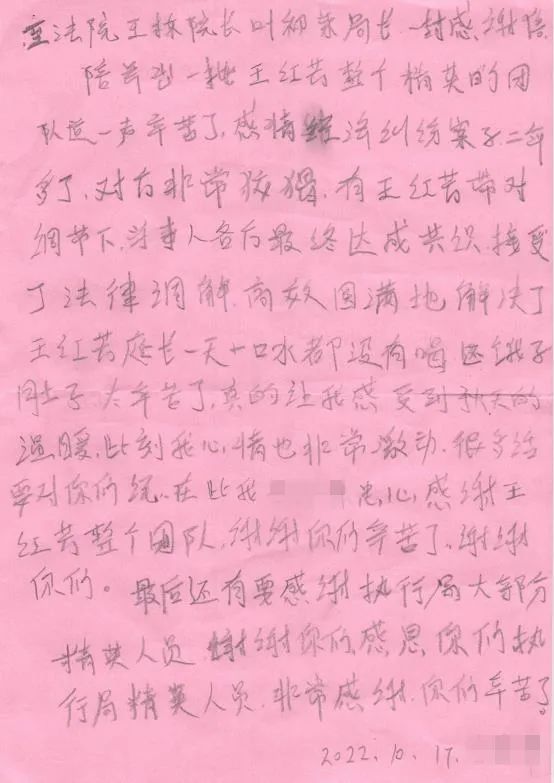 法院王栋院长叶柳荣局长.一封感谢信
王红芳整个精英的团
队道一声辛苦了,感情经济纠纷案子.二年
多了,对方非常狡猾.有王红芳带对
调节下,当事人各方最终达成共织.接受
了法律调解.高效圆满地解决了
王红芳庭长一天一口水都没有喝还饿子
肚子太辛苦了,真的让我感受到秋天的
温暖,此刻我心情也非常激动.很多话
要对你们说.在此我 忠心感谢王
红芳整个团队,谢谢你们辛苦了.谢谢
你们。最后还有要感谢执行局大部份
精英人员 谢谢你们感恩你们执
行局精英人员.非常感谢.你们辛苦了
2022.10.17.